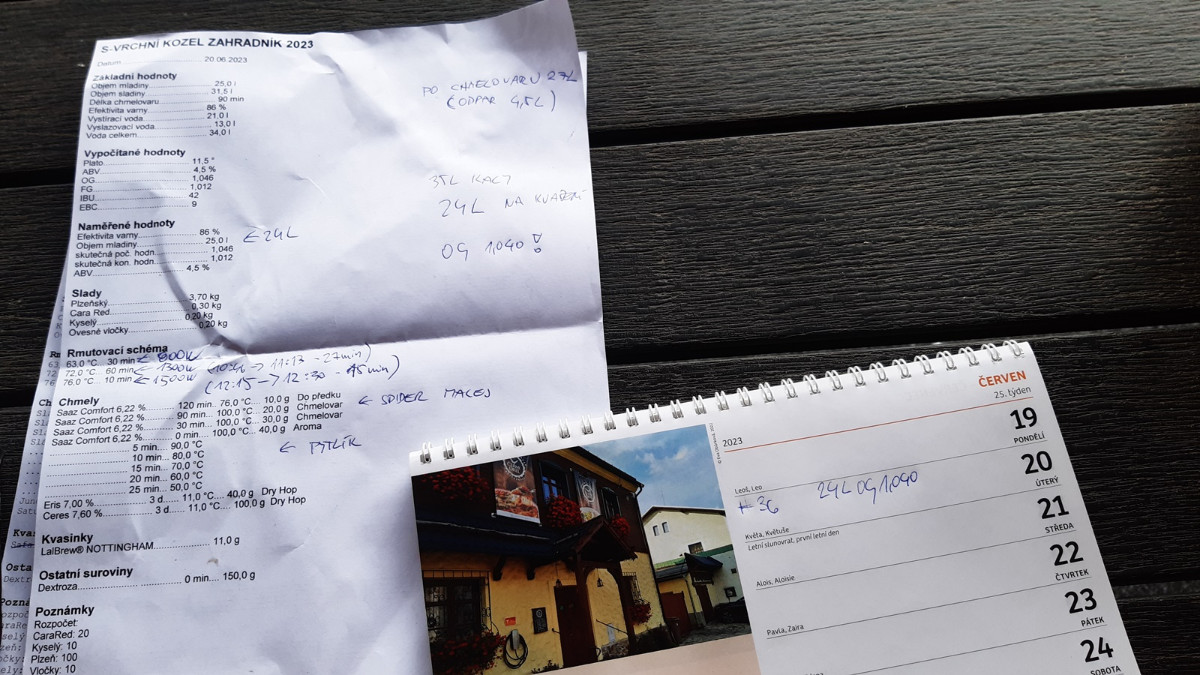 S-VRCHNÍ KOZEL ZAHRADNÍK 2023
Datum 20.06.2023
Základní hodnoty
Objem mladiny 25,0 l
Objem sladiny 31,5 l
Délka chmelovaru 90 min
Efektivita varny 86 %
Vystírací voda 21,0 l
Vyslazovací voda 13,0 l
Voda celkem 34,0 l
PO CHMELOVARU 27L
(ODPAR 4,5L)
Vypočítané hodnoty
Plato 11,5 °
ABV 4,5 %
OG 1,046
FG 1,012
IBU 42
EBC 9
35L KACÍ
24L NA KVAŠENÍ
OG 1,040 !
Naměřené hodnoty
Efektivita varny 86 %
Objem mladiny 25,0 l ← 24L
skutečná poč. hodn. 1,046
skutečná kon. hodn. 1,012
ABV 4,5 %
Slady
Plzeňský 3,70 kg
Cara Red 0,30 kg
Kyselý 0,20 kg
Ovesné vločky 0,20 kg
Rmutovací schéma
63,0 °C 30 min ← 800W
72,0 °C 60 min ← 1300W (10:46 → 11:13 - 27min)
76,0 °C 10 min ← 1500W (12:15 → 12:30 - 15min)
Chmely
Saaz Comfort 6,22 % 120 min... 76,0 °C... 10,0 g Do předku
Saaz Comfort 6,22 % 90 min... 100,0 °C... 20,0 g Chmelovar ← SPIDER MACEJ
Saaz Comfort 6,22 % 30 min... 100,0 °C... 30,0 g Chmelovar
Saaz Comfort 6,22 % 0 min... 100,0 °C... 40,0 g Aroma
5 min... 90,0 °C ← PYTLÍK
10 min... 80,0 °C
15 min... 70,0 °C
20 min... 60,0 °C
25 min... 50,0 °C
Eris 7,00 % 3 d... 11,0 °C... 40,0 g Dry Hop
Ceres 7,60 % 3 d... 11,0 °C... 100,0 g Dry Hop
Kvasinky
LalBrew® NOTTINGHAM 11,0 g
Ostatní suroviny
Dextroza 0 min.... 150,0 g
Poznámky
Rozpočet:
CaraRed: 20
Kyselý: 10
Plzeň: 100
Vločky: 10
ČERVEN
25. týden
2023
19
PONDĚLÍ
Leoš, Leo
20
ÚTERÝ
# 36 24L OG 1,040
Květa, Květuše
Letní slunovrat, první letní den
21
STŘEDA
Alois, Aloisie
22
ČTVRTEK
Pavla, Zaira
23
PÁTEK
24
SOBOTA